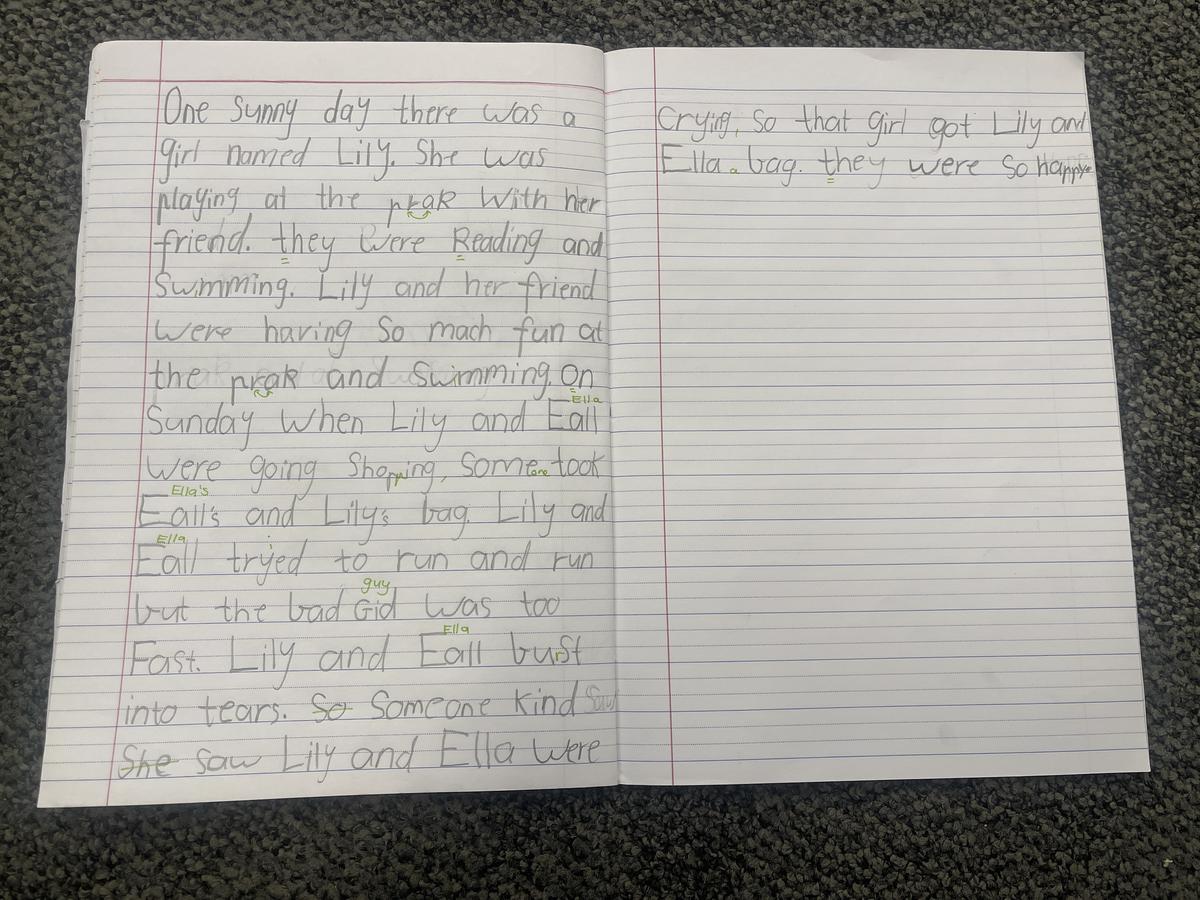 One Sunny day there was a
girl named Lily. She was
playing at the prak With her
friend. they were Reading and
Swimming. Lily and her friend
were having So mach fun at
the prak and Swimming. On
Ella
Sunday When Lily and Eall
were going Shopping, Someone took
Ella's
Eall's and Lily's bag. Lily and
Ella
Eall tryied to run and run
guy
but the bad Gid was too
Ella
Fast. Lily and Eall burst
into tears. So Someone kind saw
She saw Lily and Ella were
Crying, So that girl got Lily and
Ella a bag. they were So Happy